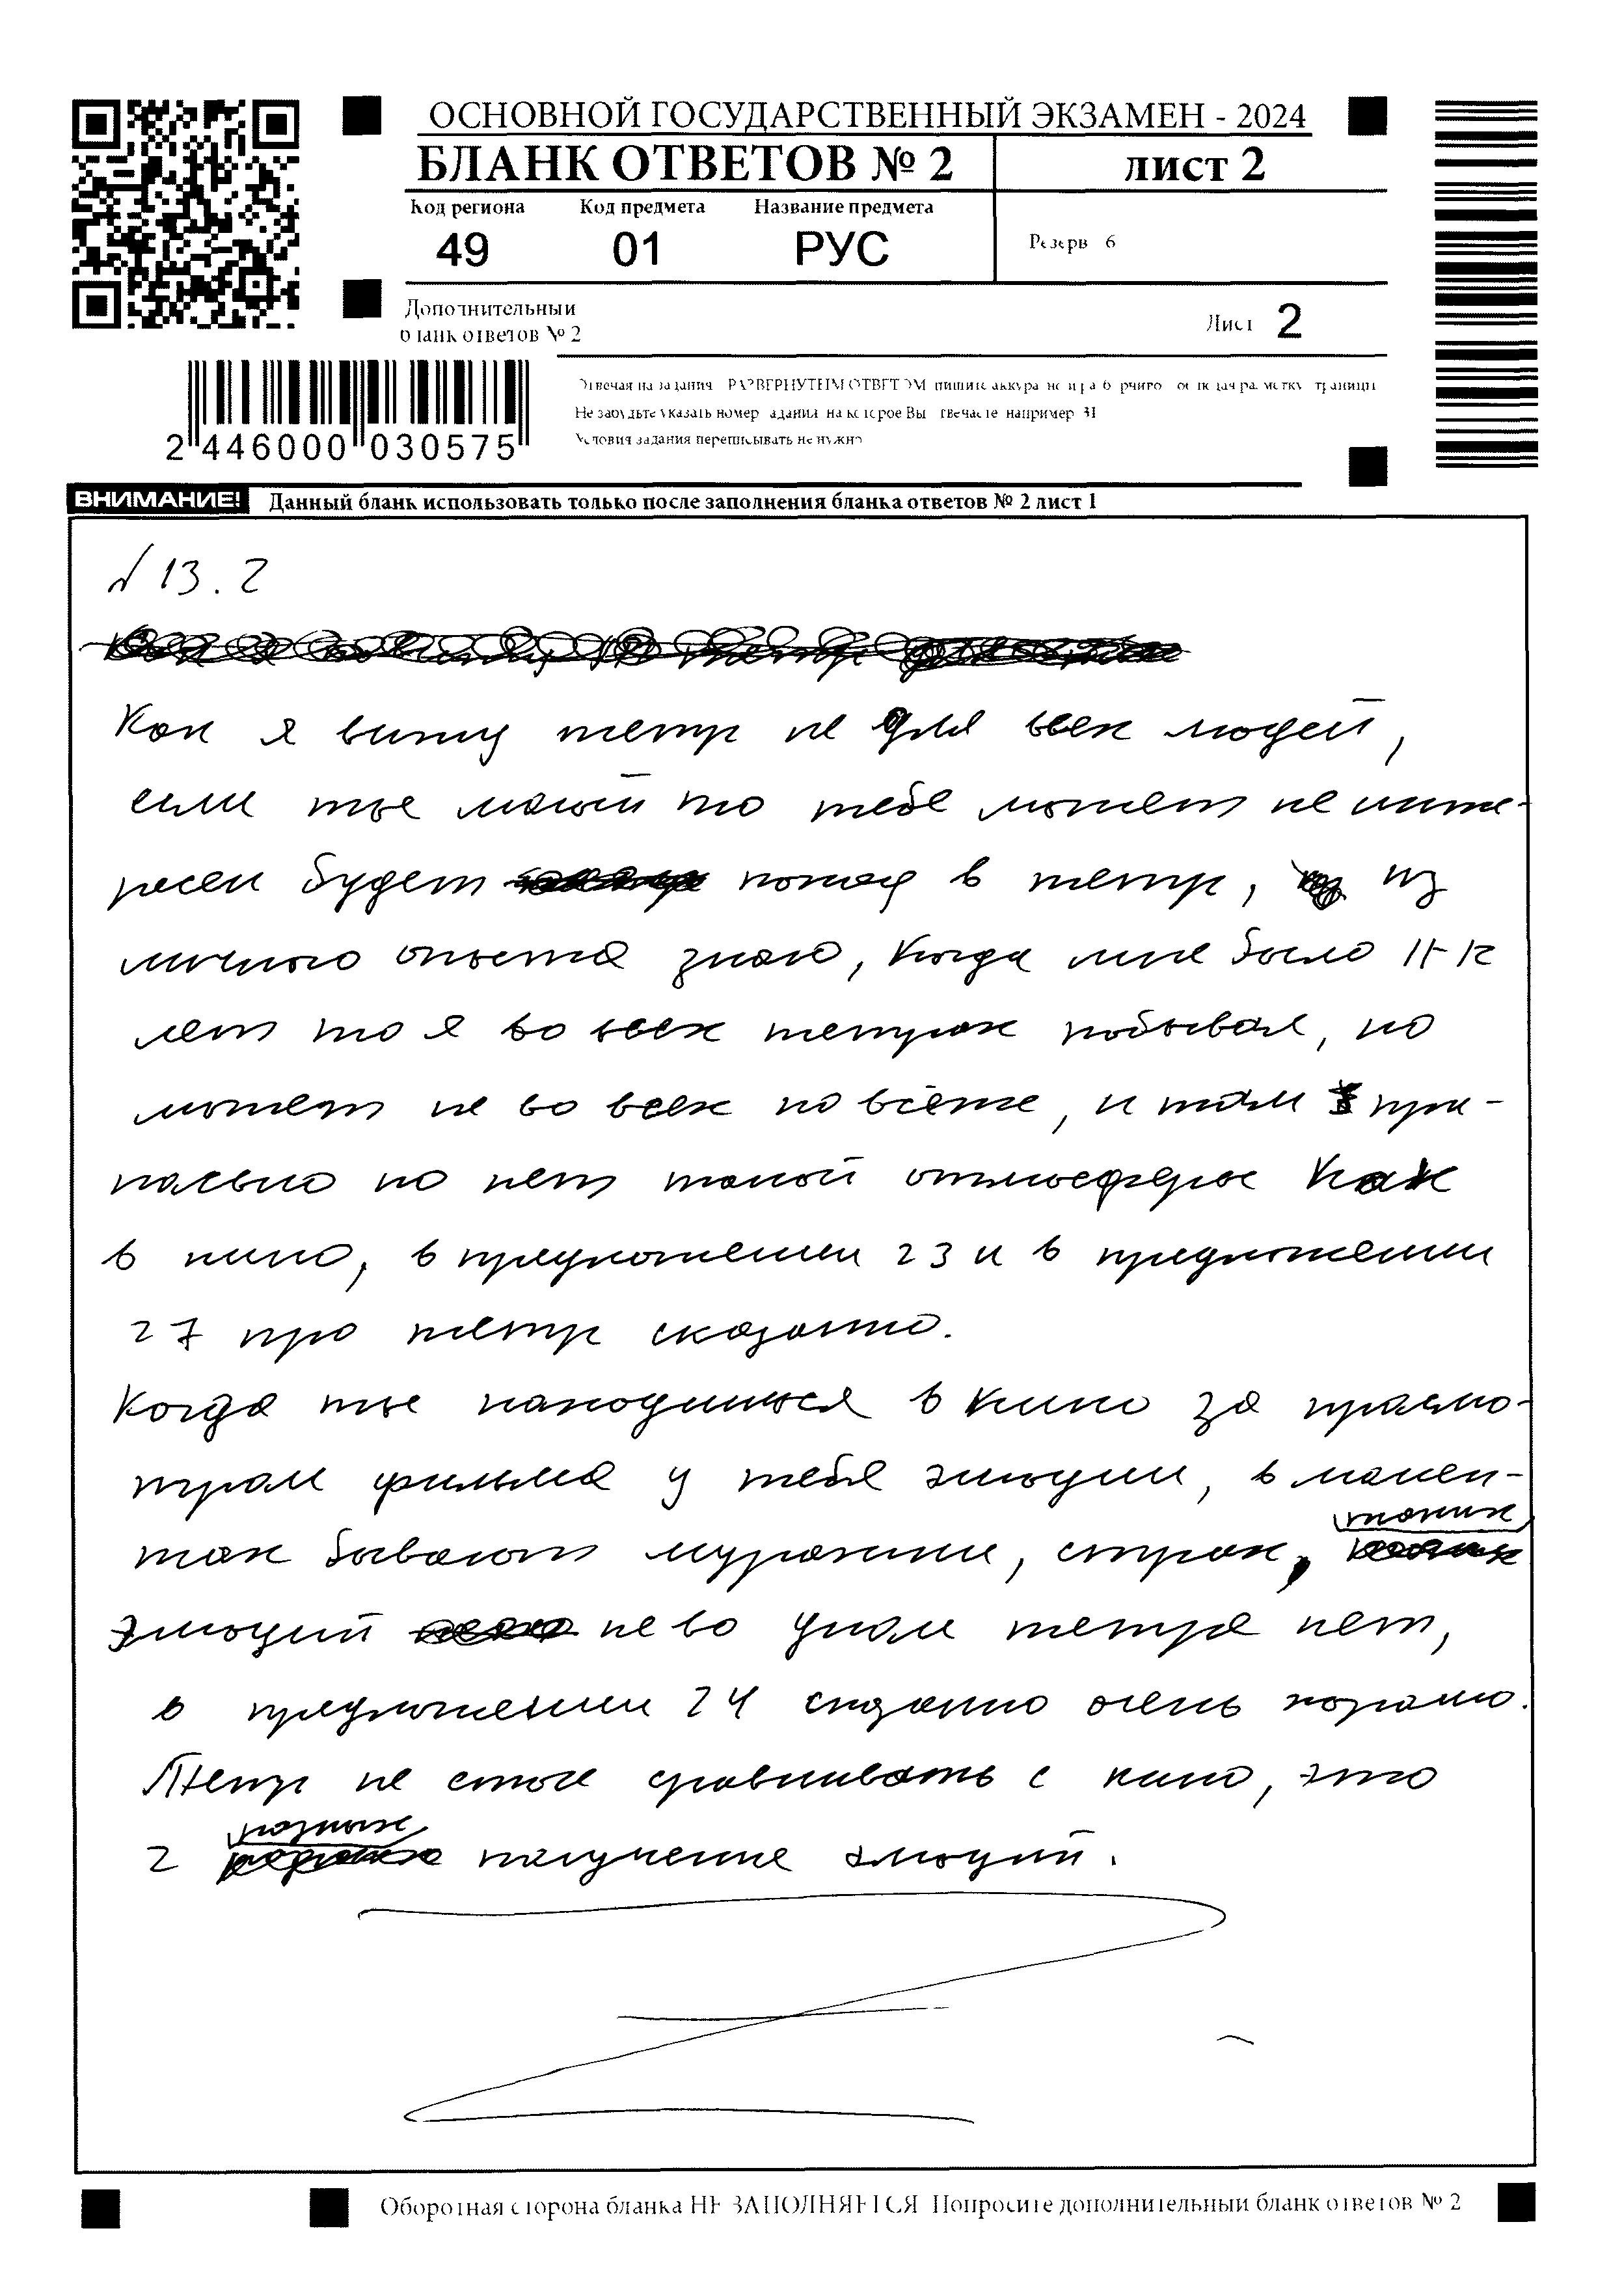 ОСНОВНОЙ ГОСУДАРСТВЕННЫЙ ЭКЗАМЕН - 2024
БЛАНК ОТВЕТОВ № 2
лист 2
Код региона Код предмета Название предмета
49 01 РУС
Резерв 6
Дополнительный
бланк ответов № 2
Лист 2
Отвечая на задания РАЗВЕРНУТЫМ ОТВЕТОМ пишите аккуратно и разборчиво
Не забудьте указать номер задания на которое Вы отвечаете например 31
Условия задания переписывать не нужно
2 446000 030575
ВНИМАНИЕ! Данный бланк использовать только после заполнения бланка ответов № 2 лист 1
№ 13.2
Как я вижу тетр не для всех людей,
если ты малый то тебе может не инте-
ресен будет поход в тетр, из
личного опыта знаю, когда мне было 11-12
лет то я во всех тетрах побывал, но
может не во всех по всёте, и там при-
кольно но нет такой отмосферы как
в кино, в предложении 23 и в предложении
27 про тетр сказанно.
Когда ты находишься в кино за прасмо-
тром фильма у тебя эмоции, в момен-
тах бывают мурашки, страх, таких
эмоций не во дном тетре нет,
в предложении 24 сказанно очень хорошо.
Тетр не стоит сравнивать с кино, это
2 разных получение эмоций.
Оборотная сторона бланка НЕ ЗАПОЛНЯЕТСЯ Попросите дополнительный бланк ответов № 2